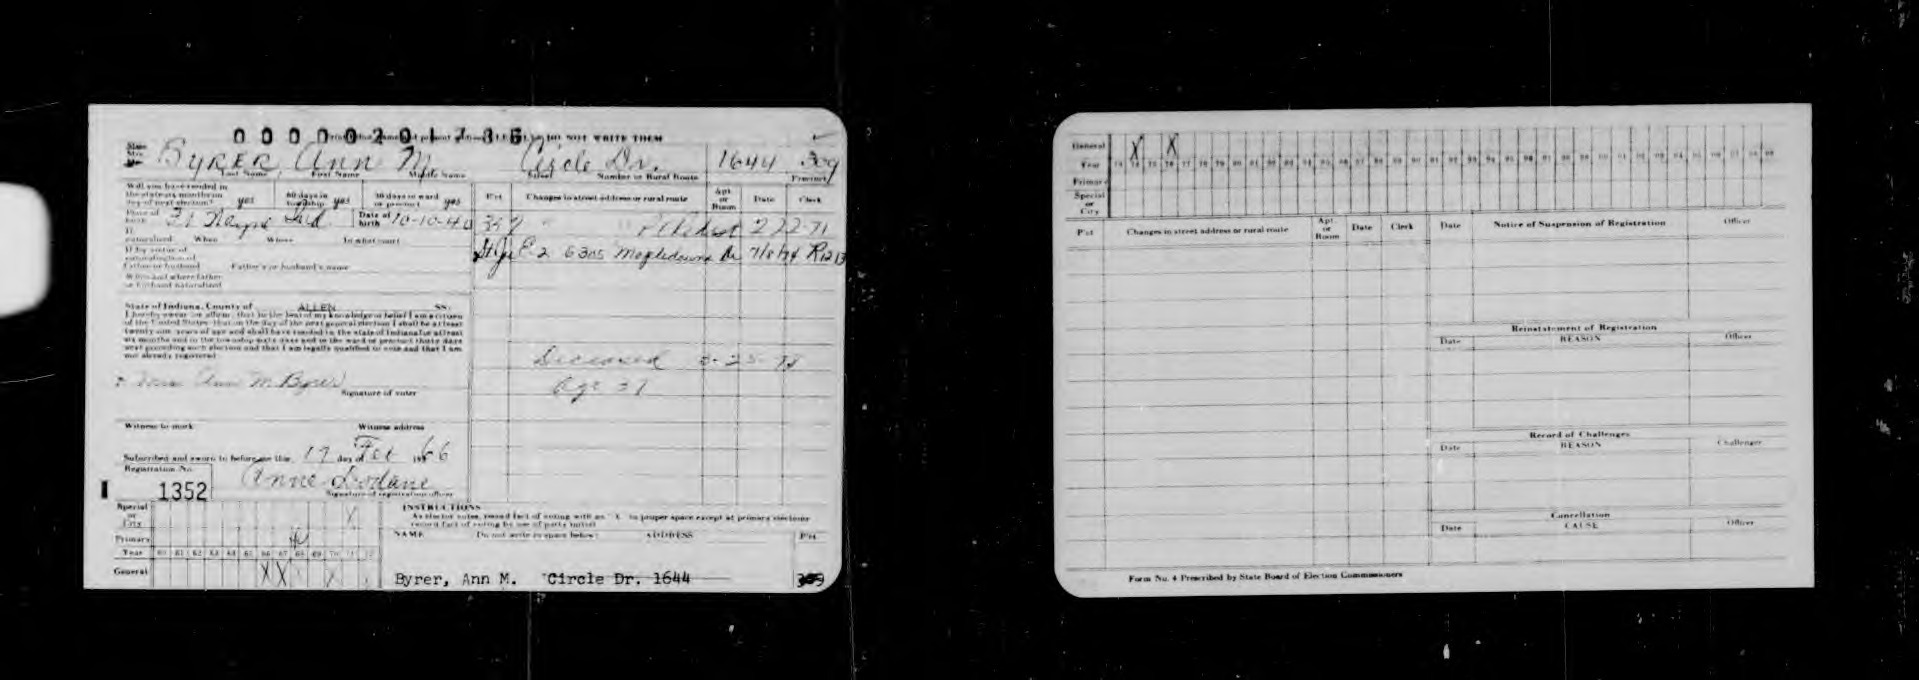 0000020 1736 DO NOT WRITE THEM
Byrer Ann M. Circle Dr. 1644 309
Last Name First Name Middle Name Street Number or Rural Route Precinct
Will you have resided in
the state six months on
day of next election? yes
60 days in
township yes
30 days in ward
or precinct yes
P'ct Changes in street address or rural route Apt. or Room Date Clerk
Place of
birth Ft Wayne Ind Date of
birth 10-10-40
2 22-71
If
naturalized When Where In what court
If by virtue of
naturalization of
Father or husband Father's or husband's name
When and where father
or husband naturalized
St Joe E 2 6305 Mapledowns Dr 7/8/74
State of Indiana, County of ALLEN SS:
I hereby swear (or affirm) that to the best of my knowledge or belief I am a citizen
of the United States, that on the day of the next general election I shall be at least
twenty-one years of age and shall have resided in the state of Indiana for at least
six months and in the township sixty days and in the ward or precinct thirty days
next preceding such election and that I am legally qualified to vote and that I am
not already registered
Deceased
Age 37
Mrs Ann M. Byrer
Signature of voter
Witness to mark Witness address
Subscribed and sworn to before me this 17 day of Feb 1966
Registration No.
1352
Anne Dodane
Signature of registration officer
Special
or
City
Primary
Year 60 61 62 63 64 65 66 67 68 69 70 71 72
General X X
INSTRUCTIONS
As elector votes, record fact of voting with an "X" in proper space except at primary elections
record fact of voting by use of party initial
NAME Do not write in space below: ADDRESS P'ct
Byrer, Ann M. Circle Dr. 1644
General X X
Year
Primary
Special
or
City
P'ct Changes in street address or rural route Apt. or Room Date Clerk
Date Notice of Suspension of Registration Officer
Reinstatement of Registration
Date REASON Officer
Record of Challenges
Date REASON Challenger
Cancellation
Date CAUSE Officer
Form No. 4 Prescribed by State Board of Election Commissioners